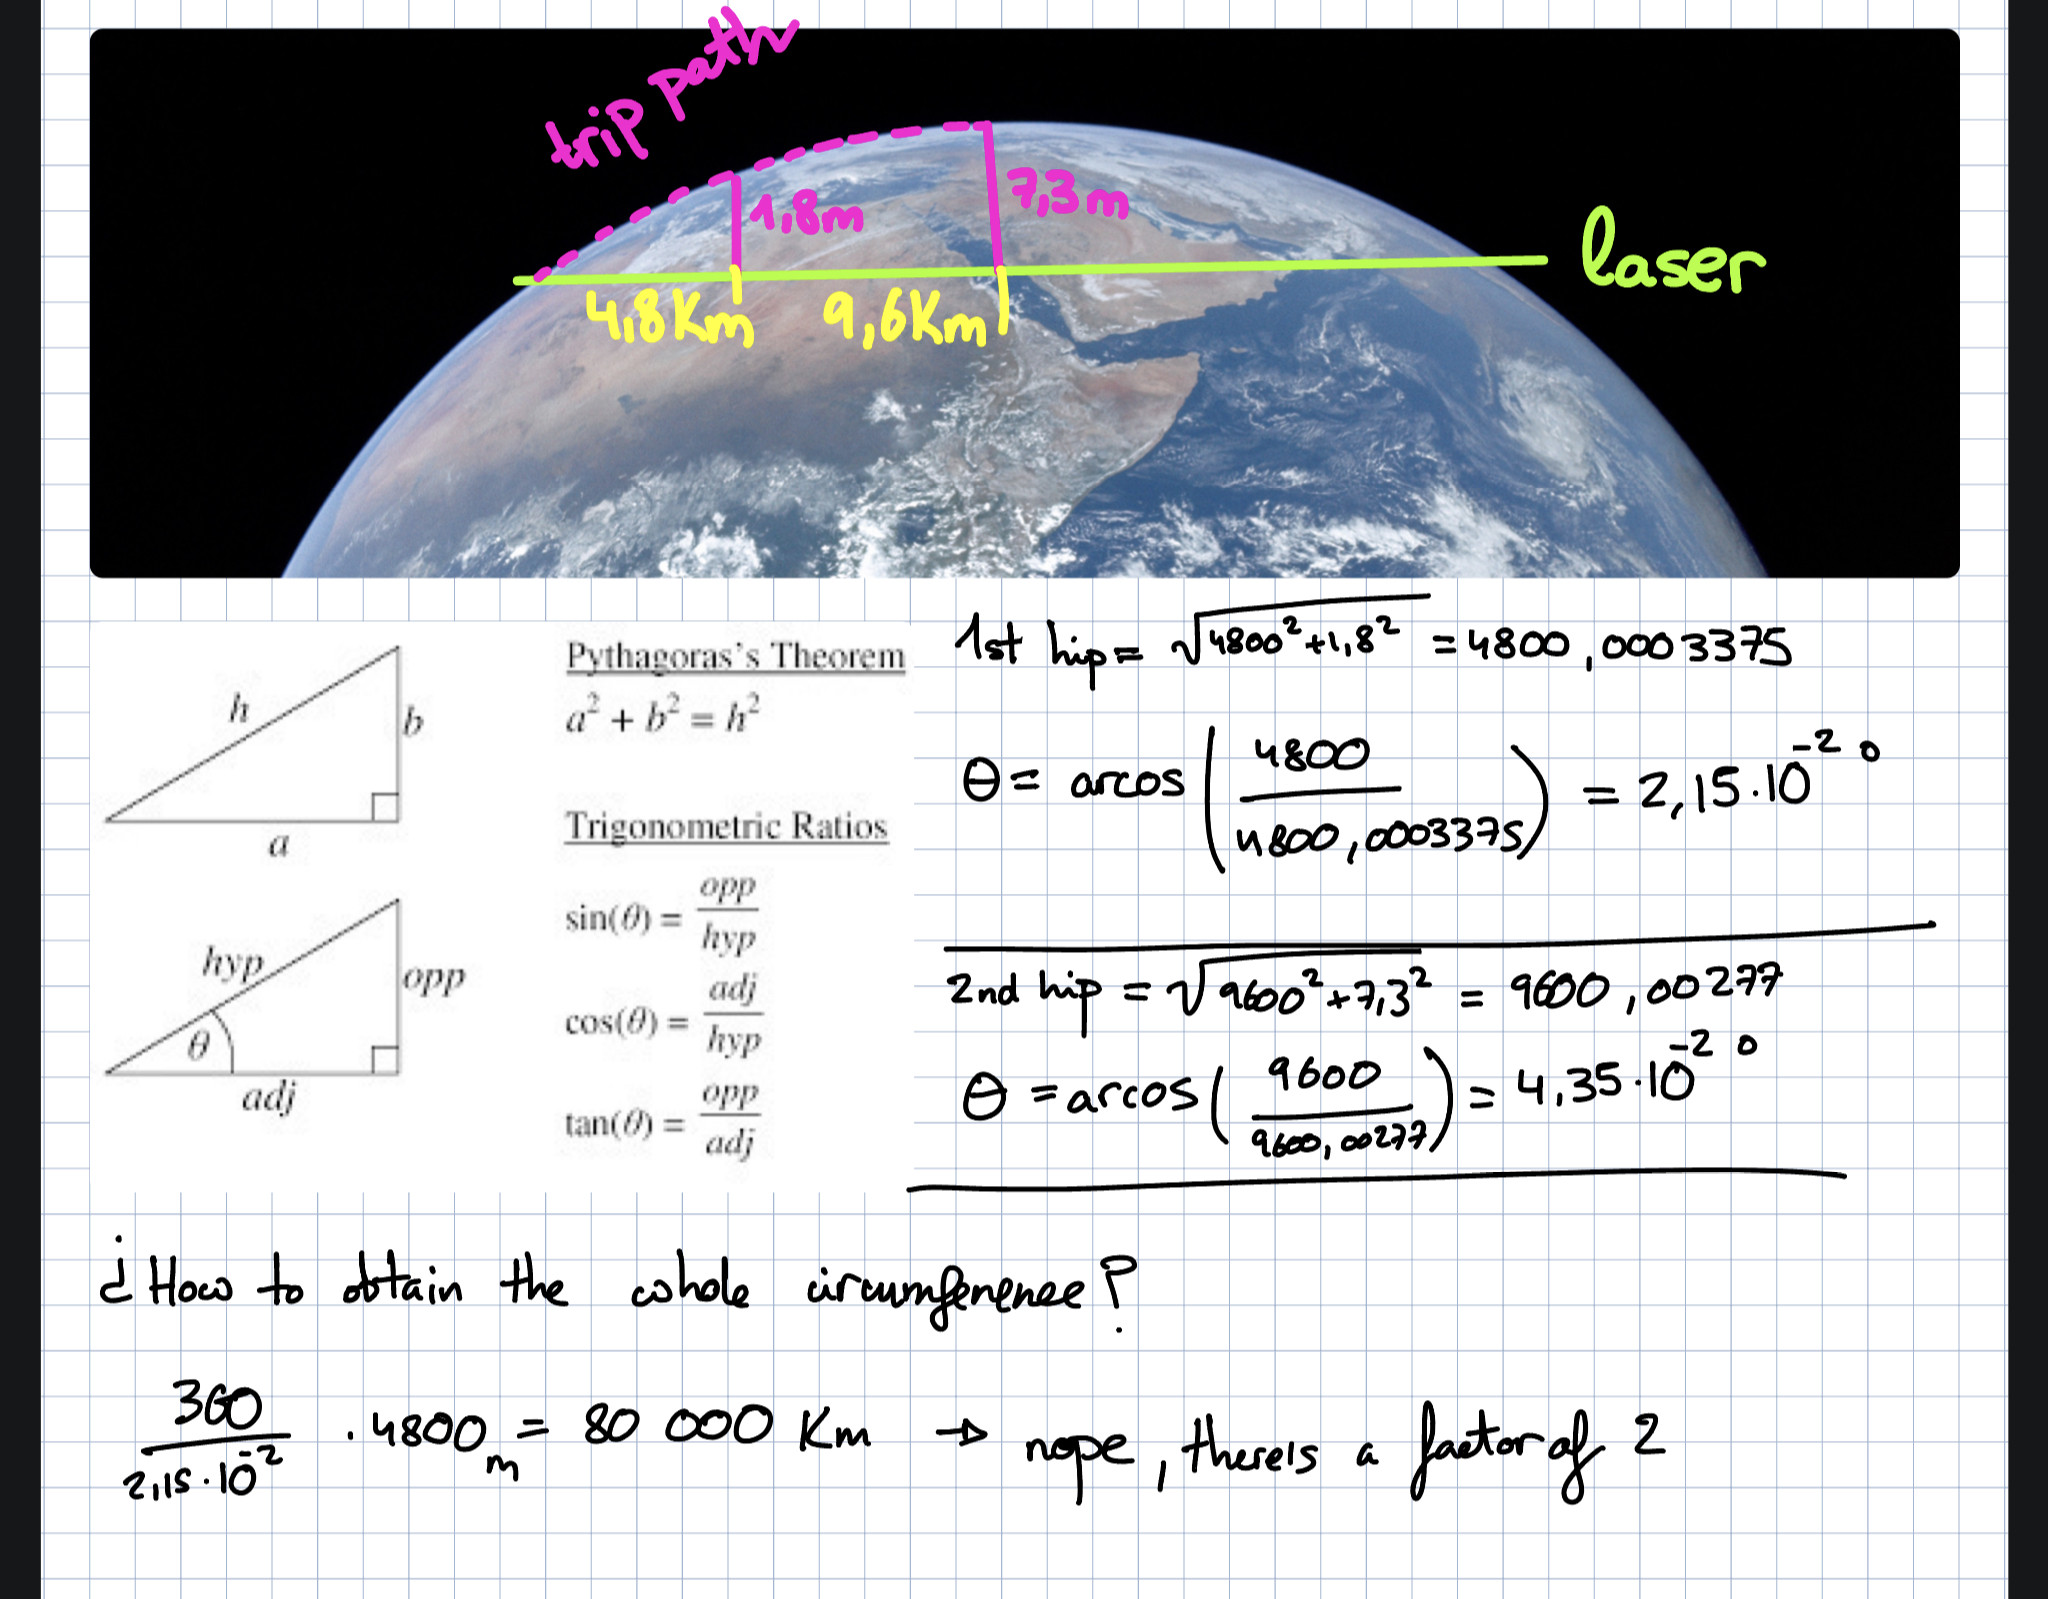 trip path
1,8m
7,3m
laser
4,8Km
9,6Km
h
b
a
Pythagoras's Theorem
a² + b² = h²
Trigonometric Ratios
hyp
opp
θ
adj
sin(θ) = opp/hyp
cos(θ) = adj/hyp
tan(θ) = opp/adj
1st hip = √4800²+1,8² = 4800,0003375
θ = arcos (4800/4800,0003375) = 2,15·10⁻² °
2nd hip = √9600²+7,3² = 9600,00277
θ = arcos (9600/9600,00277) = 4,35·10⁻² °
¿How to obtain the whole circumference?
360/2,15·10⁻² · 4800 m = 80 000 Km → nope, thereis a factor of 2